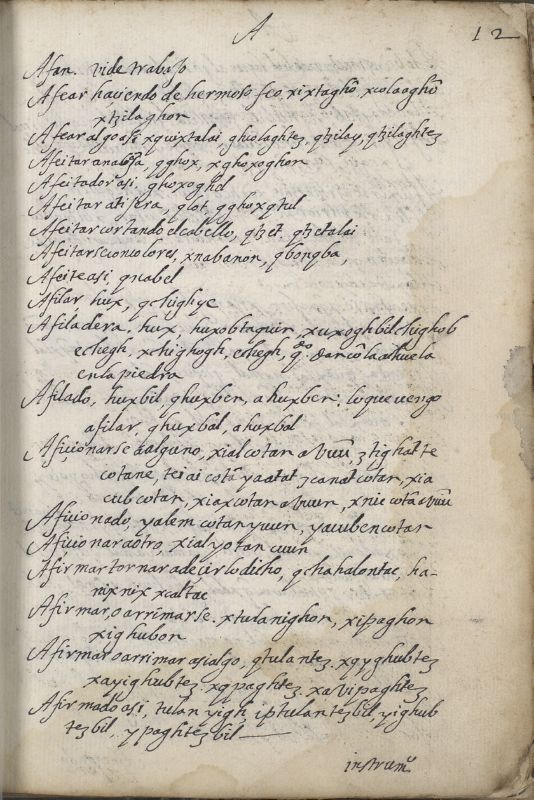 A 12
Afan. vide trabajo
Afear haviendo de hermoso feo. xixtaghõ xcolaoghõ
xtzilaghon
Afear algo asi xquixtalai, ghiolaghtez, qtzilay, qtzilaghtez
Afeitar qghox, xghoxoghon
Afeitador asi, ghoxoghel
Afeitar atisera, qlot, qghoxqtul
Afeitar cortando el cabello, qtzet. qtzetalai
Afeitarse con colores, xnabanon, qbonqba,
Afeite asi, qnabel
Afilar hux, qchighye
Afiladera, hux, huxobtaquin, xuxoghbil chighob
echegh, xchighogh, echegh, q̃ do dan cõ la
en la piedra
Afilado, huxbil qhuxben, a huxben; lo que vengo
afilar, qhuxbal, a huxbal
Afiçionarse aalguno, xialcotan ztighatte
cotane, teiai cotã yaatat canat cotan, xia
cub cotan, xiaxcotan avuun, xnic cotã avuũ
Afiçionado, yalem cotan yuun, yacuben cotan
Afiçionar aotro, xialyotan cuun
Afirmar tornar a decir lo dicho, qchahalontac, ha-
nixnix xcaltac
Afirmar, o arrimarse. xtulanighon, xipaghon
xighubon
Afirmar o arrimar asi algo, qtulantez, xqyghubtez
xayighubtez, xqpaghtez, xavipaghtez
Afirmado asi, tulan yigh, iptulantezbil, yighub
tezbil, ypaghtezbil
instrumẽ